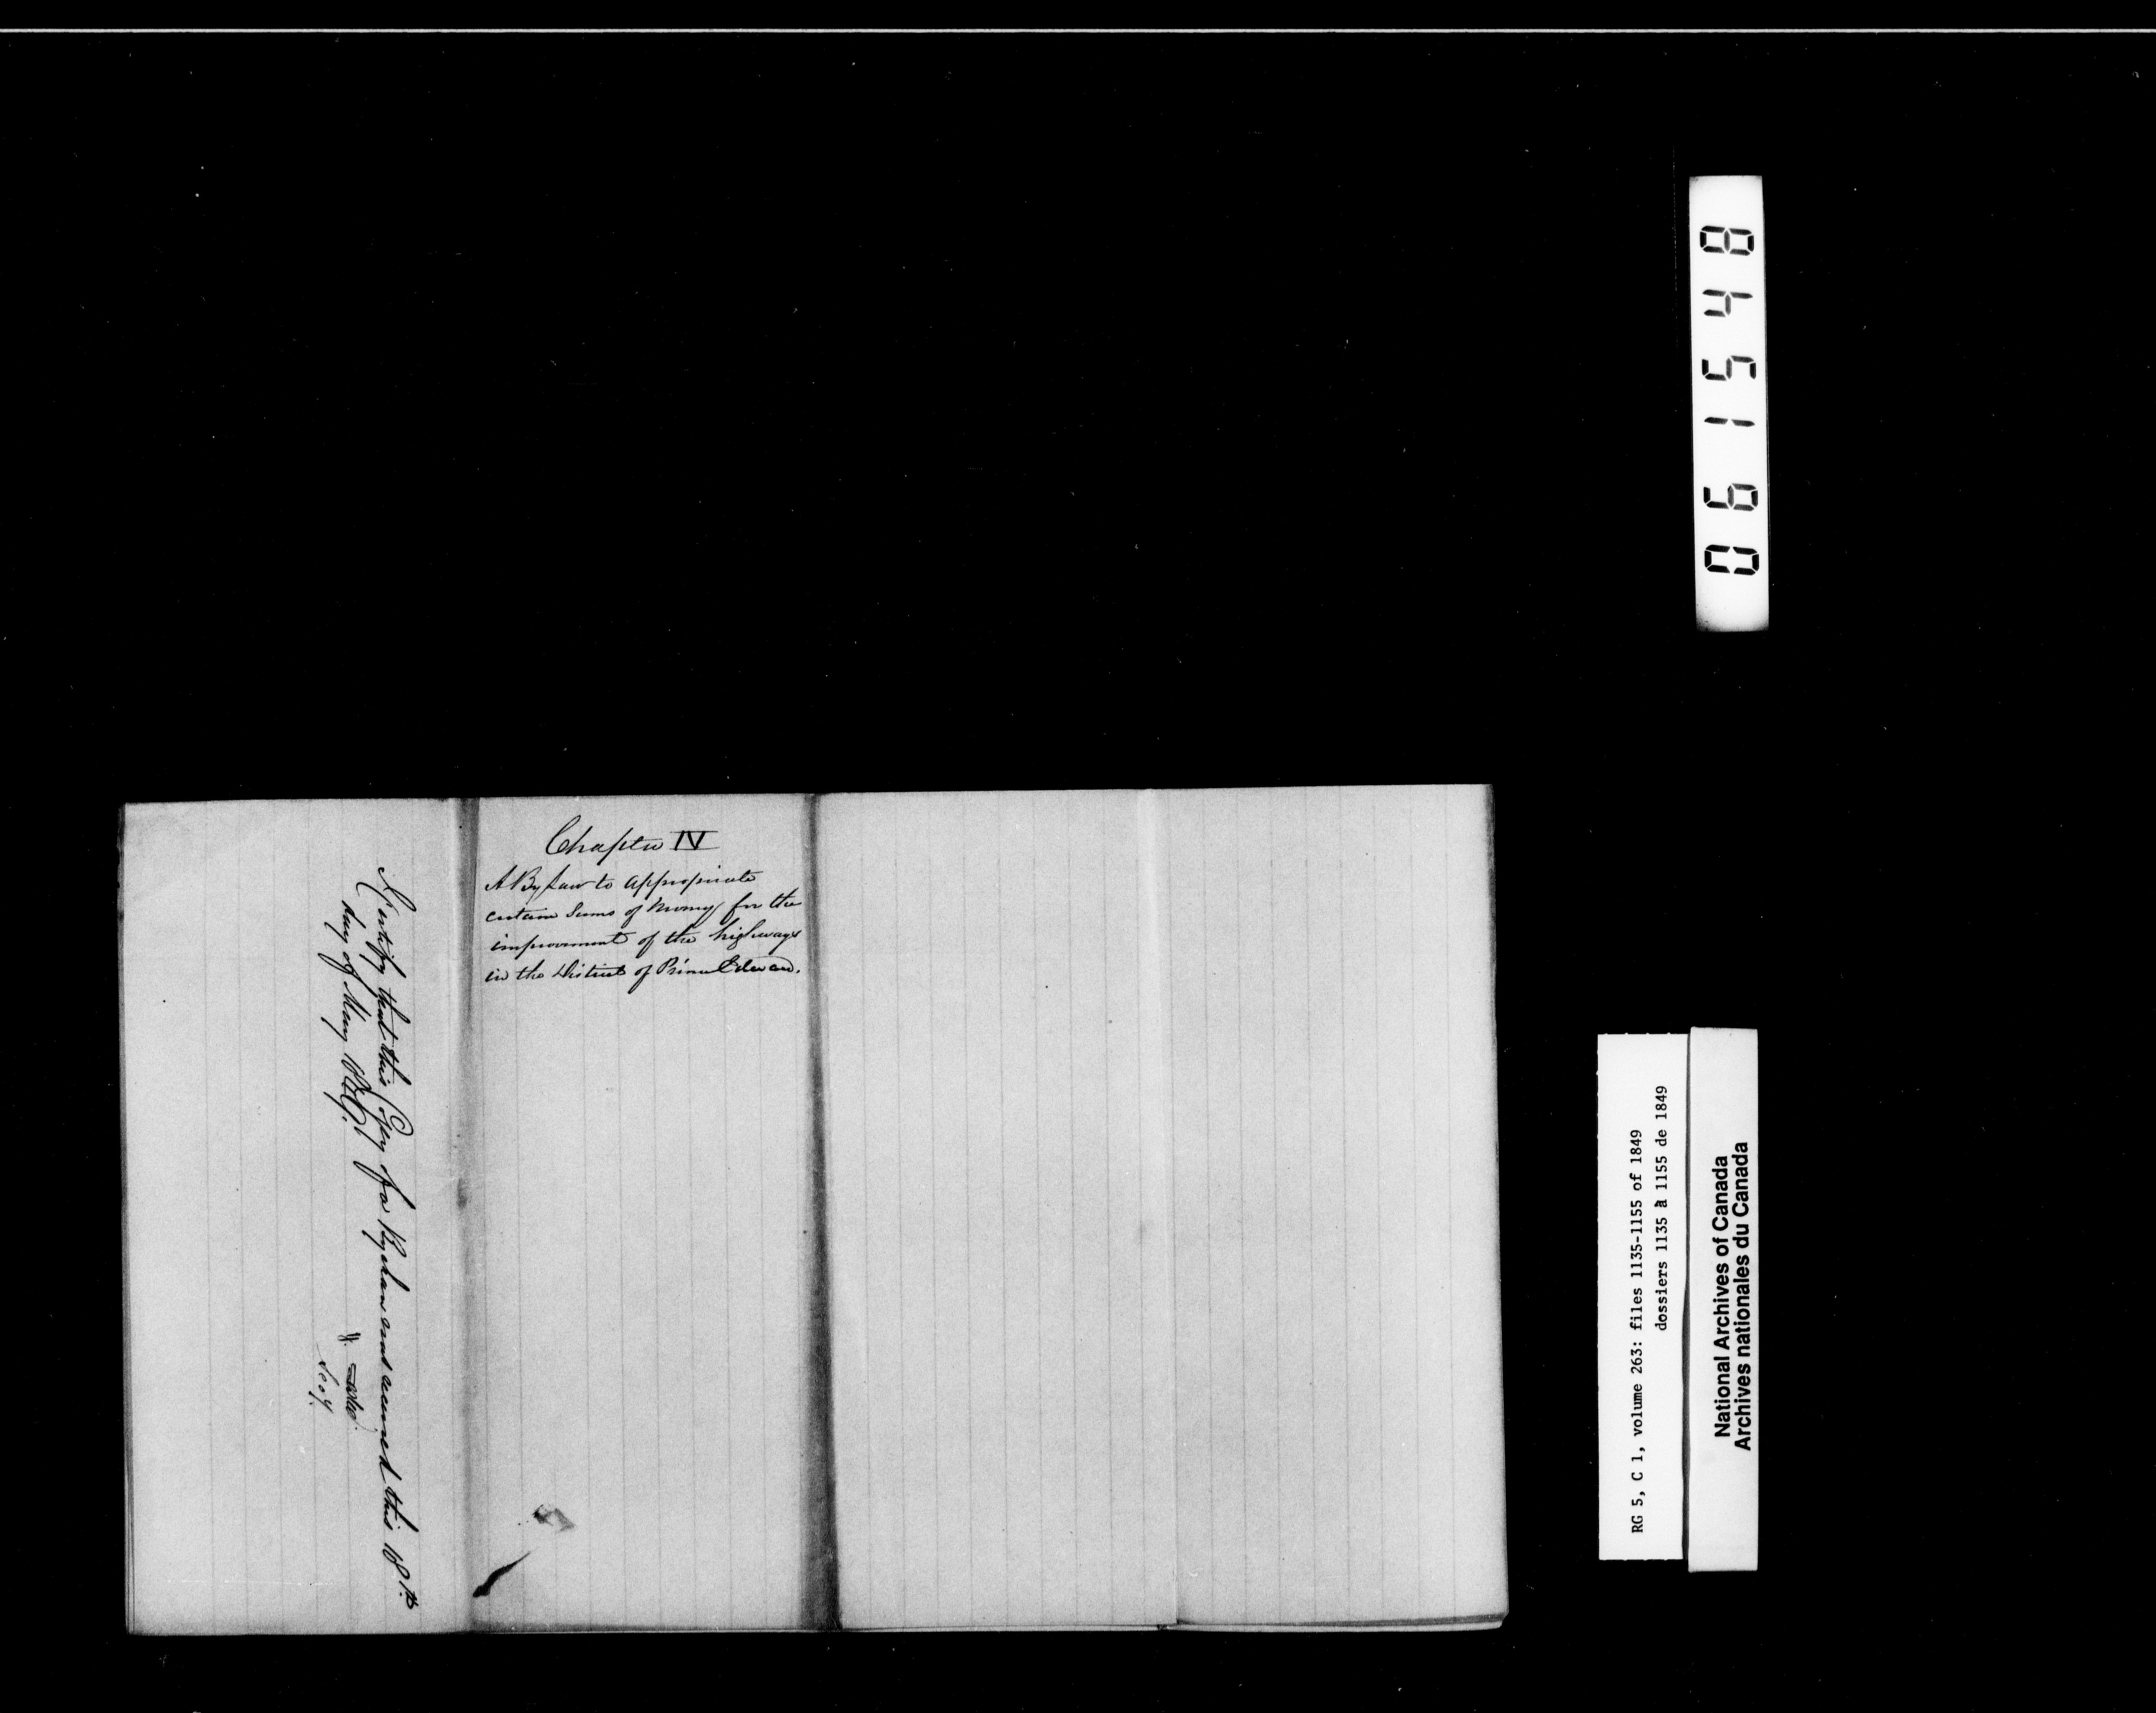 Chapter IV
A By Law to appropriate
certain Sums of Money for the
improvement of the highways
in the District of Prince Edward.
I certify that this Copy of a Bylaw and correct this 18th
day of May 1849.
Secy.
061548
RG 5, C 1, volume 263: files 1135-1155 of 1849
dossiers 1135 à 1155 de 1849
National Archives of Canada
Archives nationales du Canada